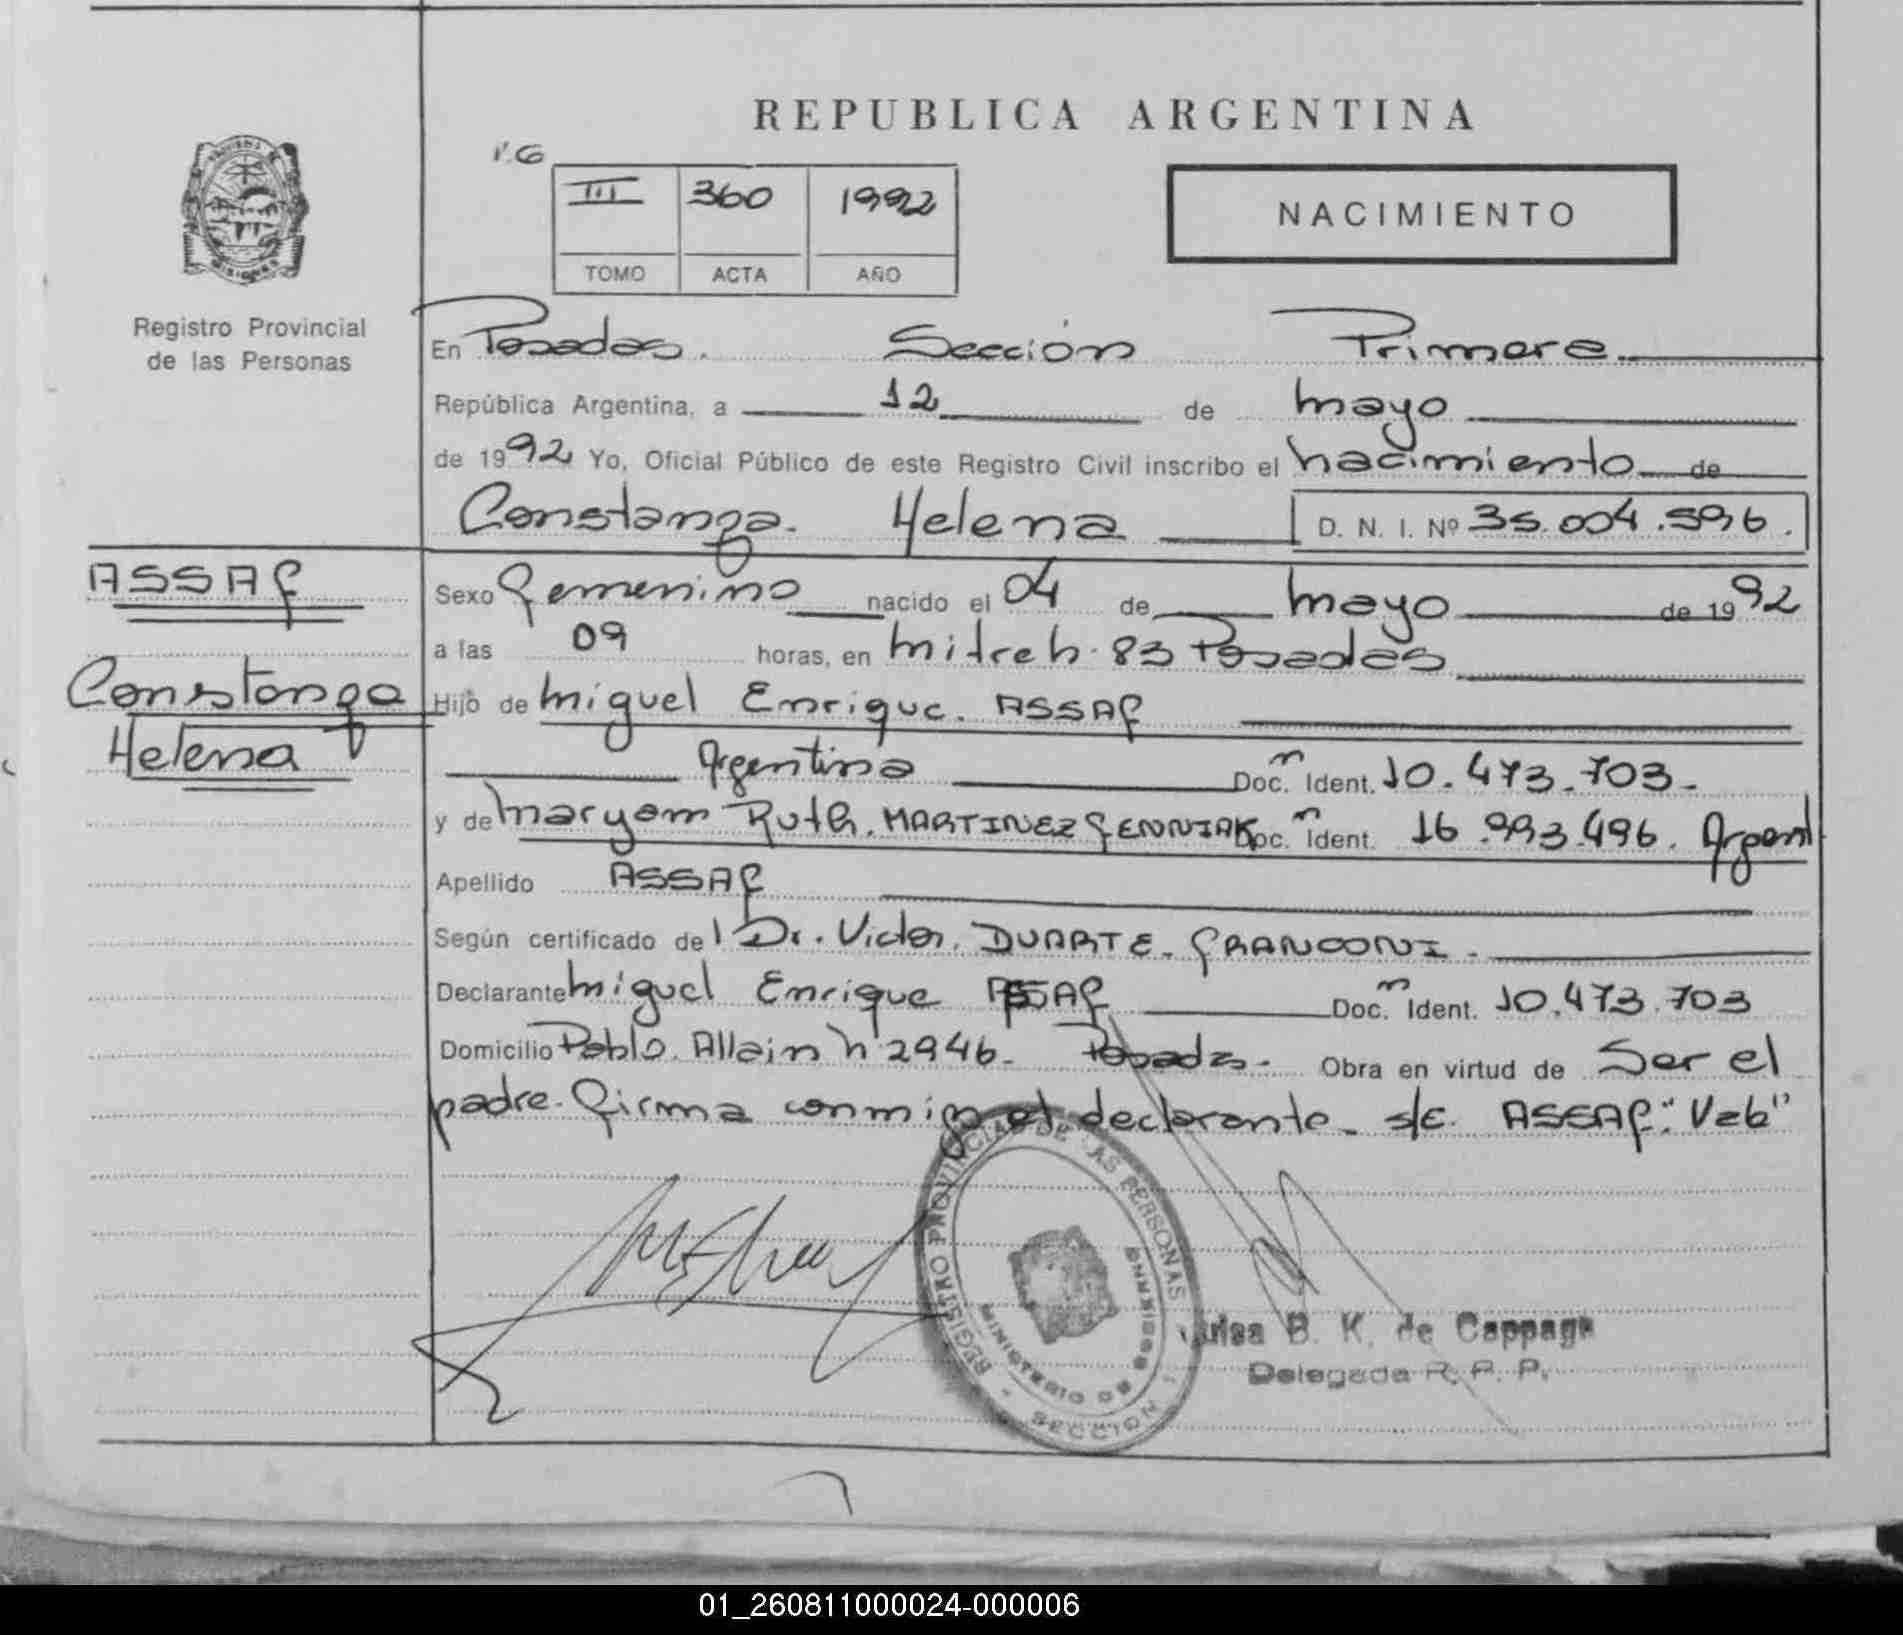 REPUBLICA ARGENTINA
III 360 1992
TOMO ACTA AÑO
NACIMIENTO
MISIONES
Registro Provincial
de las Personas
En Posadas. Sección Primera
República Argentina, a 12 de mayo
de 1992 Yo, Oficial Público de este Registro Civil inscribo el nacimiento de
Constanza Helena D. N. I. Nº 35.004.596.
ASSAF
Constanza
Helena
Sexo Femenino nacido el 04 de mayo de 1992
a las 09 horas, en Mitre n 83 Posadas
Hijo de Miguel Enrique ASSAF
Argentina Doc. Ident. 10.473.703-
y de Maryam Ruth MARTINEZ Doc. Ident. 16.993.496. Argent
Apellido ASSAF
Según certificado del Dr. Victor DUARTE FRANCONI.
Declarante Miguel Enrique ASSAF Doc. Ident. 10.473.703
Domicilio Pablo Allain nº 2946- Posadas- Obra en virtud de Ser el
padre. Firma conmigo el declarante- s/c. ASSAF: "Vale"
REGISTRO PROVINCIAL DE LAS PERSONAS
MINISTERIO DE
MISIONES
SECCION 1
Luisa B. K. de Cappagh
Delegada R. P. P.
01_260811000024-000006